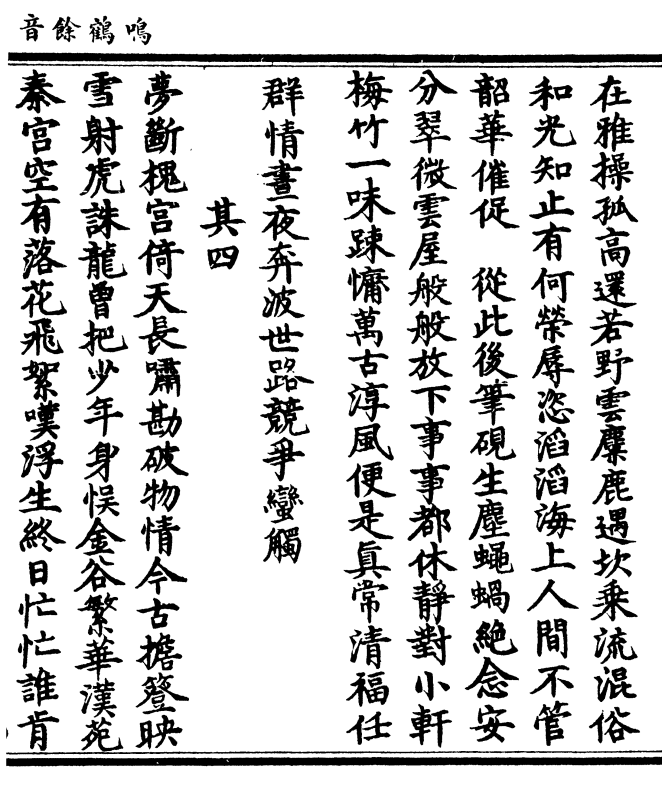 鳴鶴餘音
在雅操孤高還若野雲麋鹿遇坎乘流混俗
和光知止有何榮辱恣滔滔海上人間不管
韶華催促　從此後筆硯生塵蠅蝸絶念安
分翠微雲屋般般放下事事都休靜對小軒
梅竹一味踈慵萬古淳風便是眞常清福任
群情晝夜奔波世路競爭蠻觸
其四
夢斷槐宮倚天長嘯勘破物情今古擔簦映
雪射虎誅龍曽把少年身悮金谷繁華漢苑
秦宮空有落花飛絮嘆浮生終日忙忙誰肯